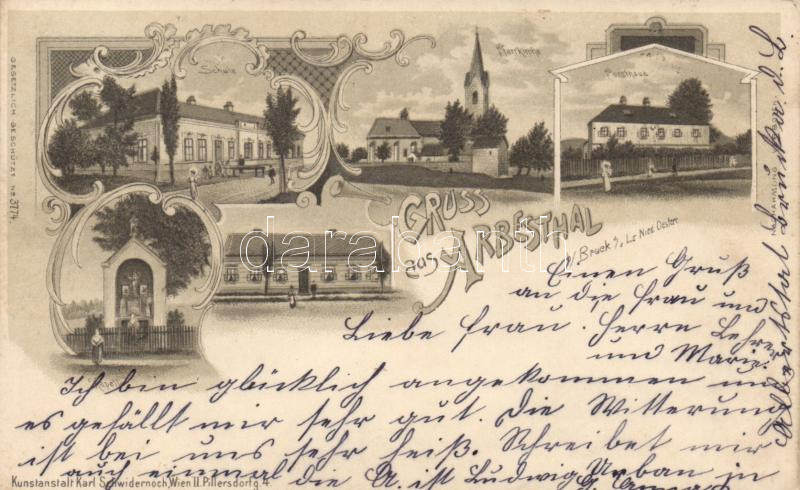 GESETZLICH GESCHÜTZT No 3774.
Schule
Pfarrkirche
Forsthaus
NACHAHMUNG
GRUSS
aus ARBESTHAL
b/ Bruck a/ L. Nied. Oester.
darabanth.com
Einen Gruß
an die frau und
Liebe frau. Herrn Lehrer
und Mariz.
Ich bin glücklich angekommen und
es gefällt mir sehr gut. Die Witterung
ist bei uns sehr heiß. Schreibet mir
auch einmal die A. ist Ludwig Urban in
Kunstanstalt Karl Schwidernoch, Wien II. Pillersdorfg. 4.